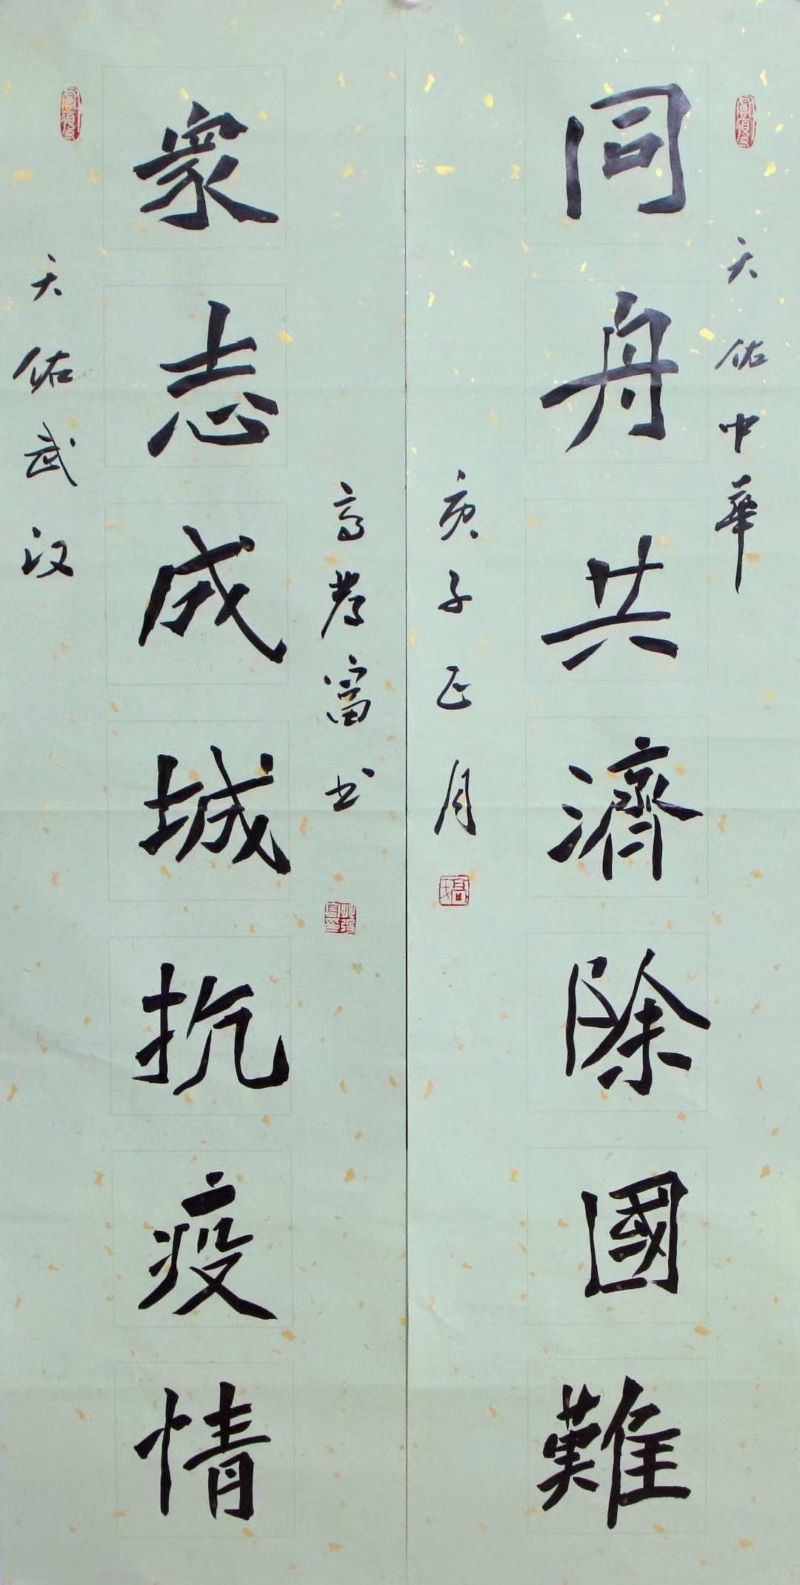 天佑中華
同舟共濟除國難
庚子正月
高 富书
衆志成城抗疫情
天佑武汉